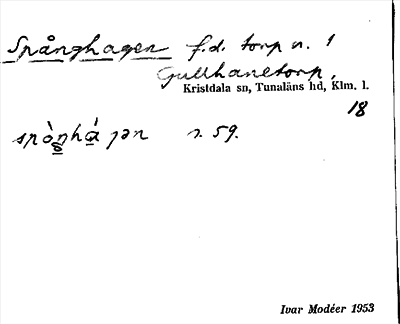 Spånghagen f.d. torp u. 1
Gullhanetorp,
Kristdala sn, Tunaläns hd, Klm. l.
18
s. 59.
Ivar Modéer 1953